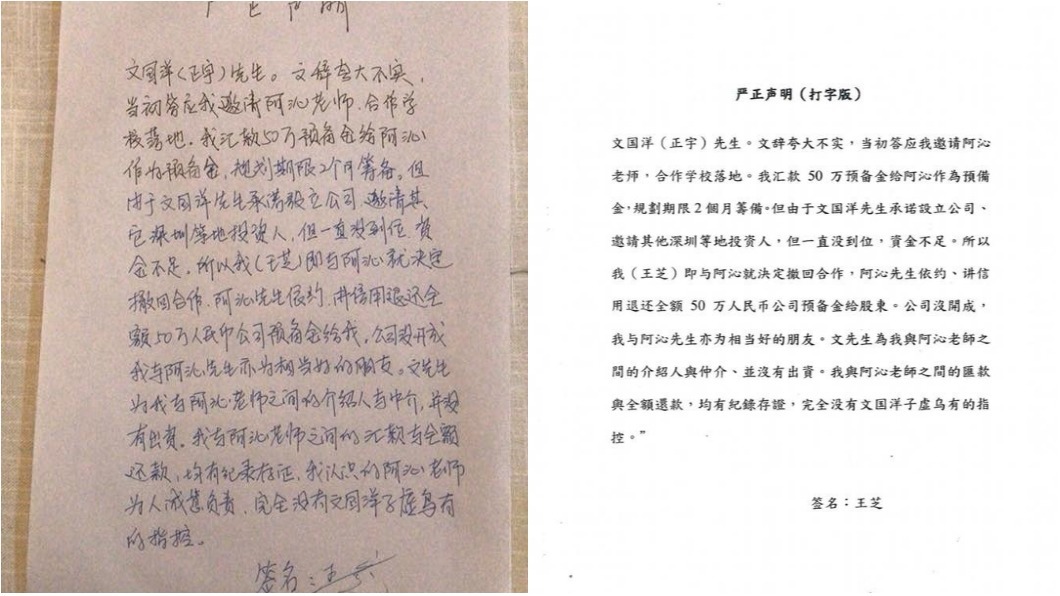 严正声明
文国洋(正宇)先生。文辞夸大不实,
当初答应我邀请阿沁老师.合作学
校落地.我汇款50万预备金给阿沁
作为预备金,规划期限2个月筹备.但
由于文国洋先生承诺设立公司.邀请其
它深圳等地投资人,但一直没到位,资
金不足.所以我(王芝)即与阿沁就决定
撤回合作.阿沁先生依约.讲信用退还全
额50万人民币公司预备金给我.公司没开成
我与阿沁先生亦为相当好的朋友。文先生
为我与阿沁老师之间的介绍人与中介,并没
有出资.我与阿沁老师之间的汇款与全额
还款,均有纪录存证,我认识的阿沁老师
为人诚恳负责,完全没有文国洋子虚乌有
的指控。
签名:王芝
严正声明(打字版)
文国洋(正宇)先生。文辞夸大不实,当初答应我邀请阿沁
老师,合作学校落地。我汇款 50 万预备金给阿沁作為預備
金,規劃期限 2 個月籌備。但由于文国洋先生承诺設立公司、
邀請其他深圳等地投資人,但一直没到位,資金不足。所以
我(王芝)即与阿沁就决定撤回合作,阿沁先生依约、讲信
用退还全额 50 万人民币公司预备金给股東。公司沒開成,
我与阿沁先生亦为相当好的朋友。文先生為我與阿沁老師之
間的介紹人與仲介、並沒有出資。我與阿沁老師之間的匯款
與全額還款,均有紀錄存證,完全没有文国洋子虚乌有的指
控。”
签名:王芝